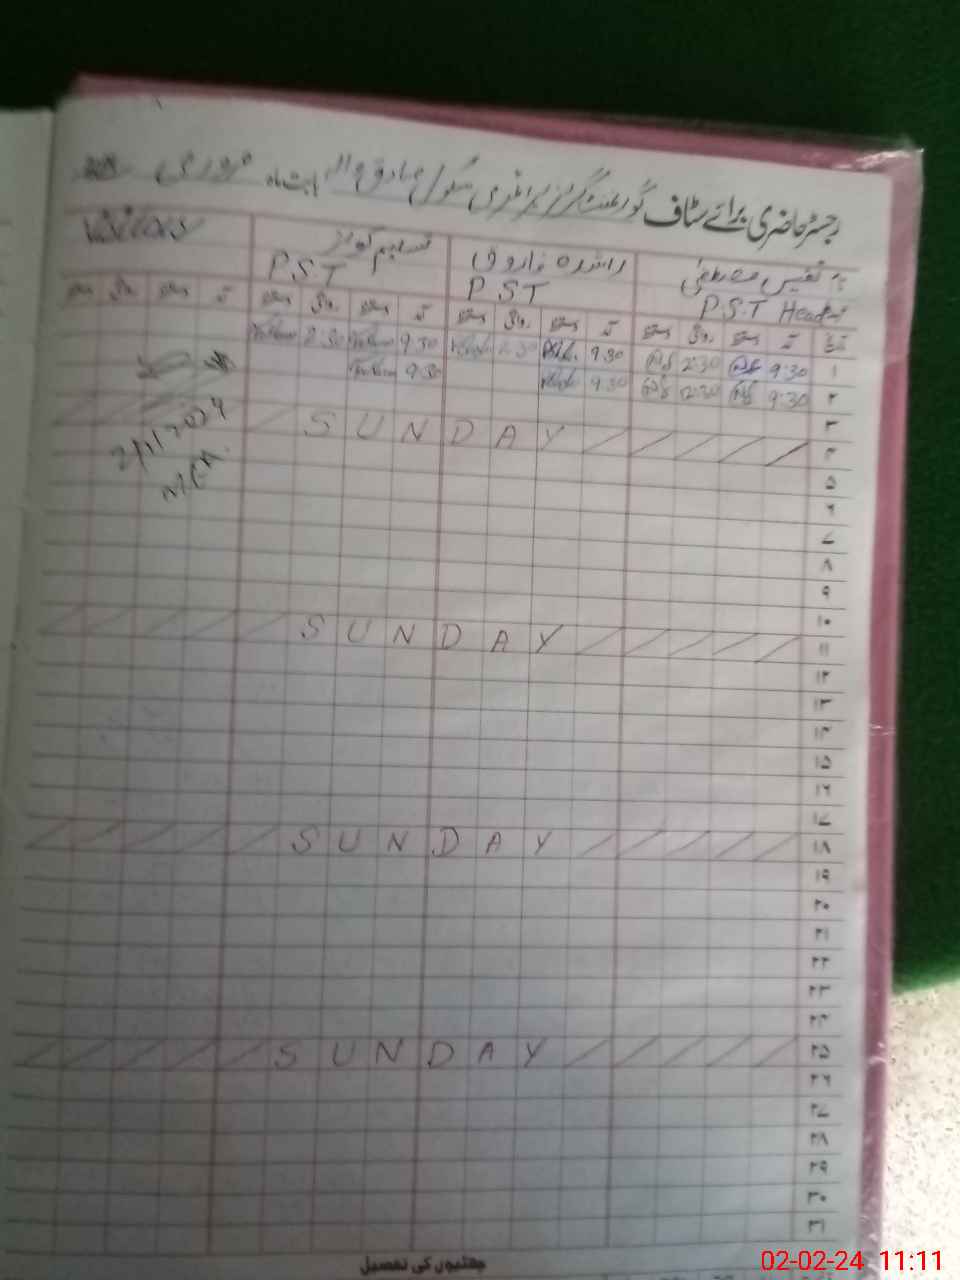 رجسٹر حاضری برائے سٹاف گورنمنٹ گرلز پرائمری سکول صادق والا بابت ماہ فروری
نفیس مصطفیٰ
راشدہ فاروق
تسلیم کوثر
Visitors
P.S.T Head
P ST
P.S.T
تاریخ آمد دستخط روانگی دستخط آمد دستخط روانگی دستخط آمد دستخط روانگی دستخط آمد دستخط روانگی دستخط
۱ 9:30 2:30 9:30 2:30 9:30 2:30
۲ 9:30 2:30 9:30 9:30
۳
۴ SUNDAY
2/1/2024
۵
۶
M.E.A.
۷
۸
۹
۱۰
۱۱ SUNDAY
۱۲
۱۳
۱۴
۱۵
۱۶
۱۷
۱۸ SUNDAY
۱۹
۲۰
۲۱
۲۲
۲۳
۲۴
۲۵ SUNDAY
۲۶
۲۷
۲۸
۲۹
۳۰
۳۱
چھٹیوں کی تفصیل
02-02-24 11:11